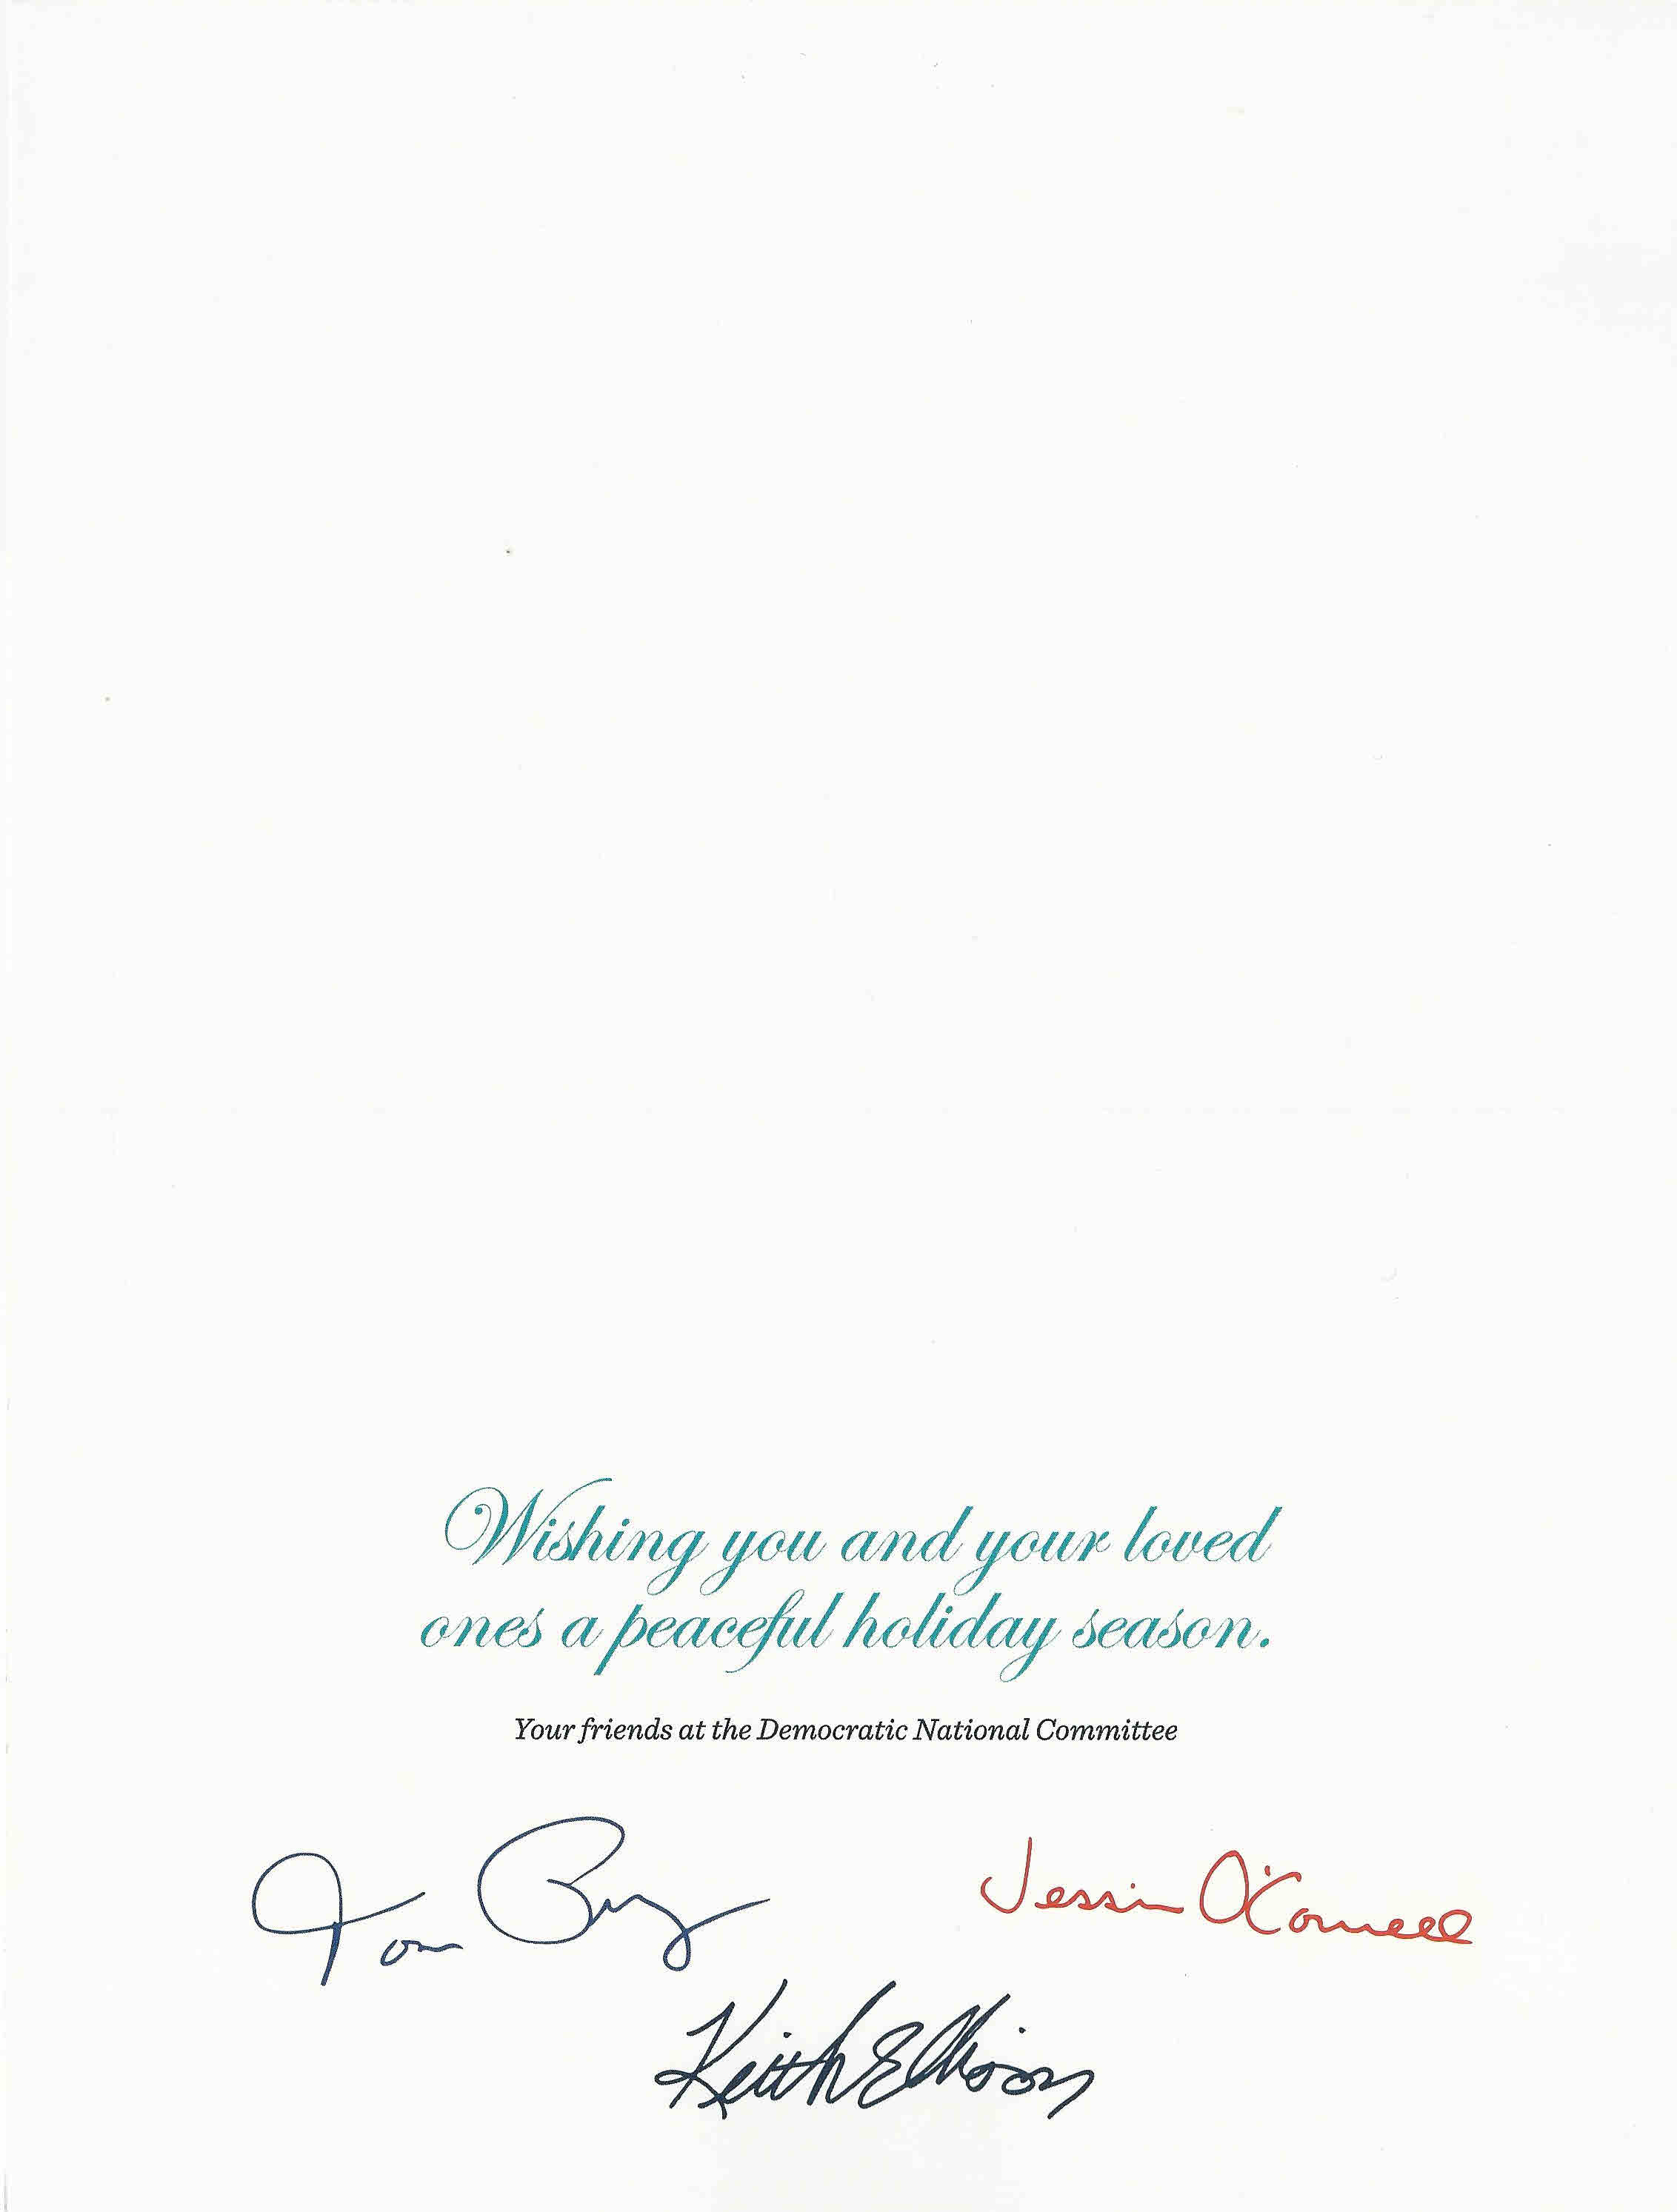 Wishing you and your loved
ones a peaceful holiday season.
Your friends at the Democratic National Committee
Tom Perez
Jessica O'Connell
Keith Ellison